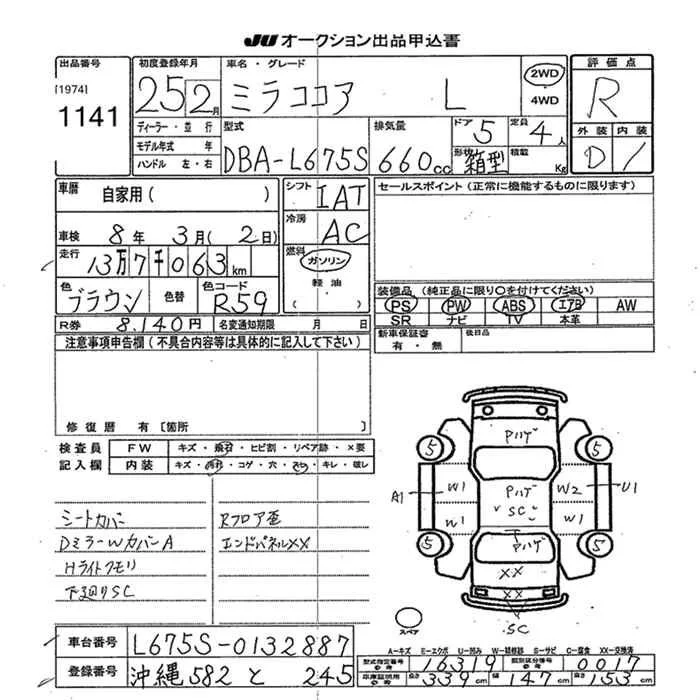 JU オークション出品申込書
出品番号
[1974]
1141
初度登録年月
25 2月
車名・グレード
ミラココア L
2WD
4WD
評価点
R
外装 内装
D 1
ディーラー・並行
モデル年式 年
ハンドル 左・右
型式
DBA-L675S
排気量
660cc
ドア 5
定員 4人
形状 箱型
積載 Kg
車歴 自家用( )
車検 8年 3月(2日)
走行 13万7千063km
色 ブラウン
色替
色コード R59
シフト IAT
冷房 AC
燃料 ガソリン
軽油
( )
セールスポイント(正常に機能するものに限ります)
装備品(純正品に限り○を付けてください)
PS PW ABS エアB AW
SR ナビ TV 本革
R券 8,140円
名変通知期限 月 日
新車保証書
有・無
後日品
注意事項申告欄(不具合内容等は具体的に記入して下さい)
修復歴 有〔箇所 〕
検査員
記入欄
FW キズ・飛石・ヒビ割・リペア跡・×要
内装 キズ・汚れ・コゲ・穴・スレ・キレ・破レ
シートカバー
DミラーWカバーA
Hライトクモリ
下廻りSC
Rフロア歪
エンドパネルXX
Pハゲ
5 5
A1 W1 Pハゲ W2 U1
SC
W1 W1
5 Pハゲ 5
XX
XX
SC
スペア
車台番号 L675S-0132887
登録番号 沖縄 582 と 245
A=キズ E=エクボ U=凹み W=補修跡 S=サビ C=腐食 XX=交換済
型式指定番号 16319
類別区分番号 0017
車庫証明用
長さ 339cm 幅 147cm 高さ 153cm